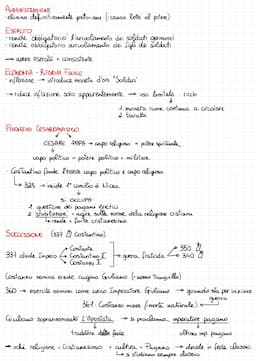 AMMINISTRAZIONE
· elimina definitivamente pretoriani (causa lotte al potere)
ESERCITO
· rende obbligatorio l'arruolamento dei soldati germani
· rende obbligatorio arruolamento dei figli di soldati
→ avere eserciti + consistente
ECONOMIA - RIFORMA FISCALE
· inflazione → introduce moneta d'oro "Solidus"
→ riduce inflazione solo apparentemente → uso limitato ricchi
1. moneta rame continua a circolare
2. baratto
FENOMENO CESAROPAPISMO
CESARE PAPA → capo religioso + potere spirituale
capo politico - potere politico + militare
· Costantino fonde l'essere capo politico e capo religioso
→ 325 → incide 1° concilio di Nicea
SI OCCUPÒ
1. questione dei pagani eretici
2. sovvenzione - agire sulle norme della religione cristiana
→ rende + forte cristianesimo
SUCCESSIONE (337 Costantino)
337 divide Impero
Costante
Costantino II
Costanzo II
→ guerra fratricida
350
340
Costanzo nomina erede cugino Giuliano (uomo tranquillo)
360 → esercito nomina come unico imperatore Giuliano → quando stia per iniziare guerra
361 Costanzo muore (morte naturale)
Giuliano soprannominato L'Apostata → si proclama imperatore pagano
traditore della fede
ultimo imp. pagano
→ odii religione - Cristianesimo + cultura - Pagana → decade in fede classica
→ si studiano sempre classici